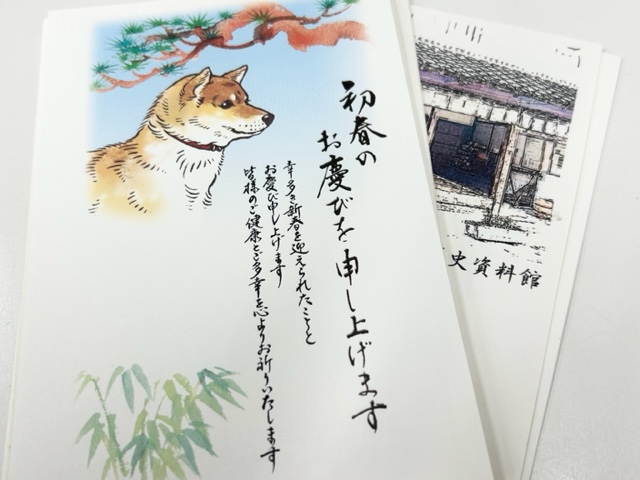 初春の
お慶びを申し上げます
幸多き新春を迎えられたことと
お慶び申し上げます
皆様のご健康とご多幸を心よりお祈りいたします
史資料館